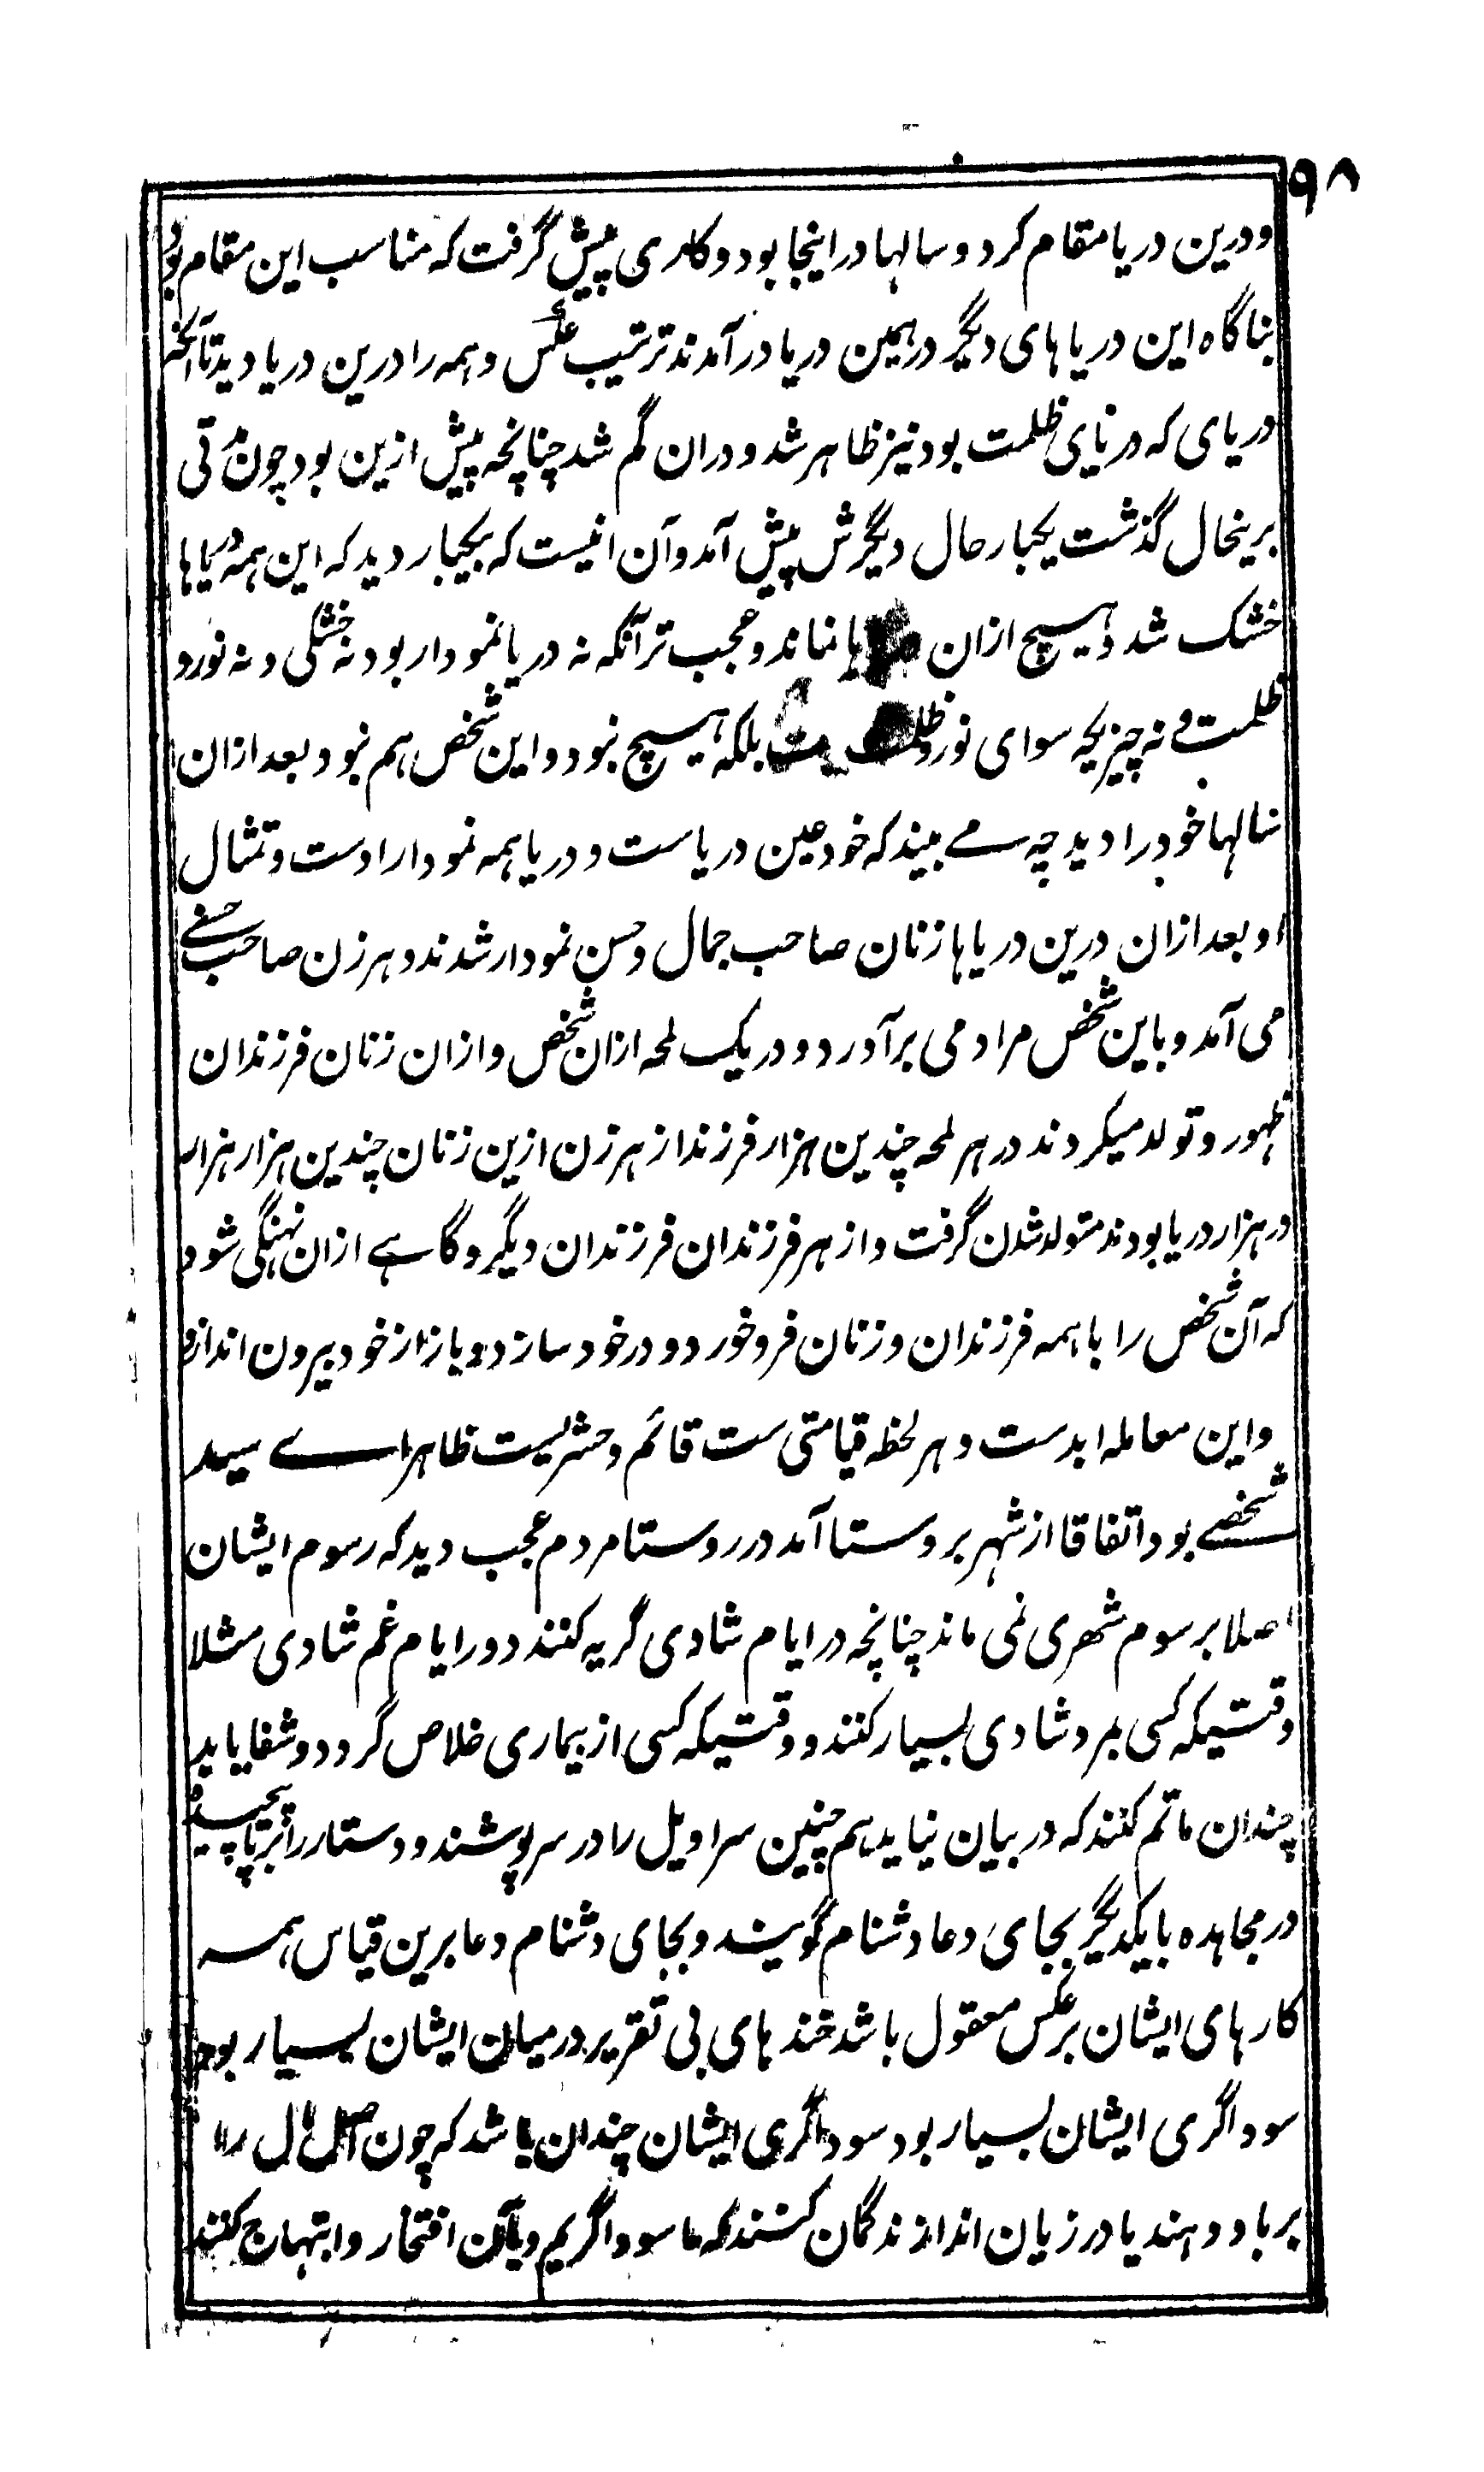 ۹۸
ودرین دریا مقام کرد و سالها در اینجا بود و کاری پیش گرفت که مناسب این مقام بود
بناگاه این دریاهای دیگر درہمین دریا درآمدند ترتیب عکس وہمه را درین دریا دید تا آنکه
دریای که در نای ظلمت بود نیز ظاہر شد و دران گم شد چنانچه پیش ازین بود چون مدتی
برینحال گذشت یکبار حال دیگرش پیش آمد و آن اینست که بیکبار دید که این ہمه دریاها
خشک شد وہیچ ازان ہا نماند و عجب تر آنکه نه دریا نمودار بود نه خشکی و نه نور و
ظلمت و نه چیزیکه سوای نور و ظلمت بلکه ہیچ نبود و این شخص ہم نبود بعد ازان
سالها خود را دید چه مے بیند که خود عین دریاست و دریا ہمه نمودار اوست و تمثال
او بعد ازان درین دریاہا زنان صاحب جمال و حسن نمودار شدند و ہر زن صاحب حسنے
می آمد و باین شخص مراد می برآورد و در یک لمحه ازان شخص و ازان زنان فرزندان
ظہور و تولد میکردند در ہر لمحه چندین ہزار فرزند از ہر زن ازین زنان چندین ہزار ہزار
در ہزار دریا بودند متولد شدن گرفت و از ہر فرزندان فرزندان دیگر و گاہے ازان نہنگی شود
که آن شخص را با ہمه فرزندان و زنان فرو خورد و در خود سازد و باز از خود بیرون اندازد
و این معامله ابدست و ہر لحظه قیامتی ست قائم و حشریست ظاہر اے سید
شخصے بود اتفاقا از شہر بروستا آمد در روستا مردم عجب دید که رسوم ایشان
اصلا برسوم شهری نمی ماند چنانچه در ایام شادی گریه کنند و در ایام غم شادی مثلا
وقتیکه کسی بمرد شادی بسیار کنند و وقتیکه کسی از بیماری خلاص گردد و شفا یابد
چندان ماتم کنند که در بیان نیاید ہم چنین سراویل را در سر پوشند و دستار را بر پا پیچیده
در مجاہده با یکدیگر بجای دعا دشنام گویند و بجای دشنام دعا برین قیاس ہمه
کارہای ایشان بر عکس معقول باشد خندہای بی تقریر درمیان ایشان بسیار بود
سوداگری ایشان بسیار بود سوداگری ایشان چندان باشد که چون اصل مال را
برباد دہند یا در زیان اندازند گمان کنند که ما سوداگریم و بآن افتخار و ابتہاج کنند